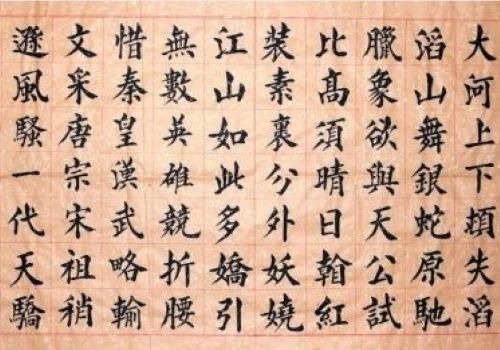 大河上下頓失滔
滔山舞銀蛇原馳
臘象欲與天公試
比髙須晴日紅
装素裹分外妖嬈
江山如此多嬌引
無數英雄競折腰
惜秦皇漢武略輸
文采唐宗宋祖稍
遜風騷一代天驕